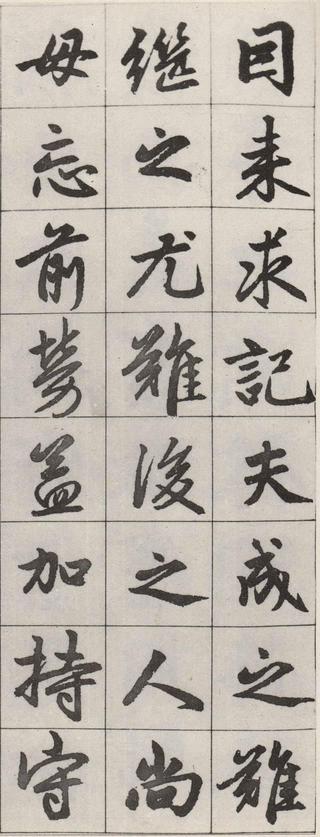 囙来求記夫成之難
繼之尤難後之人尚
毋忘前勞益加持守